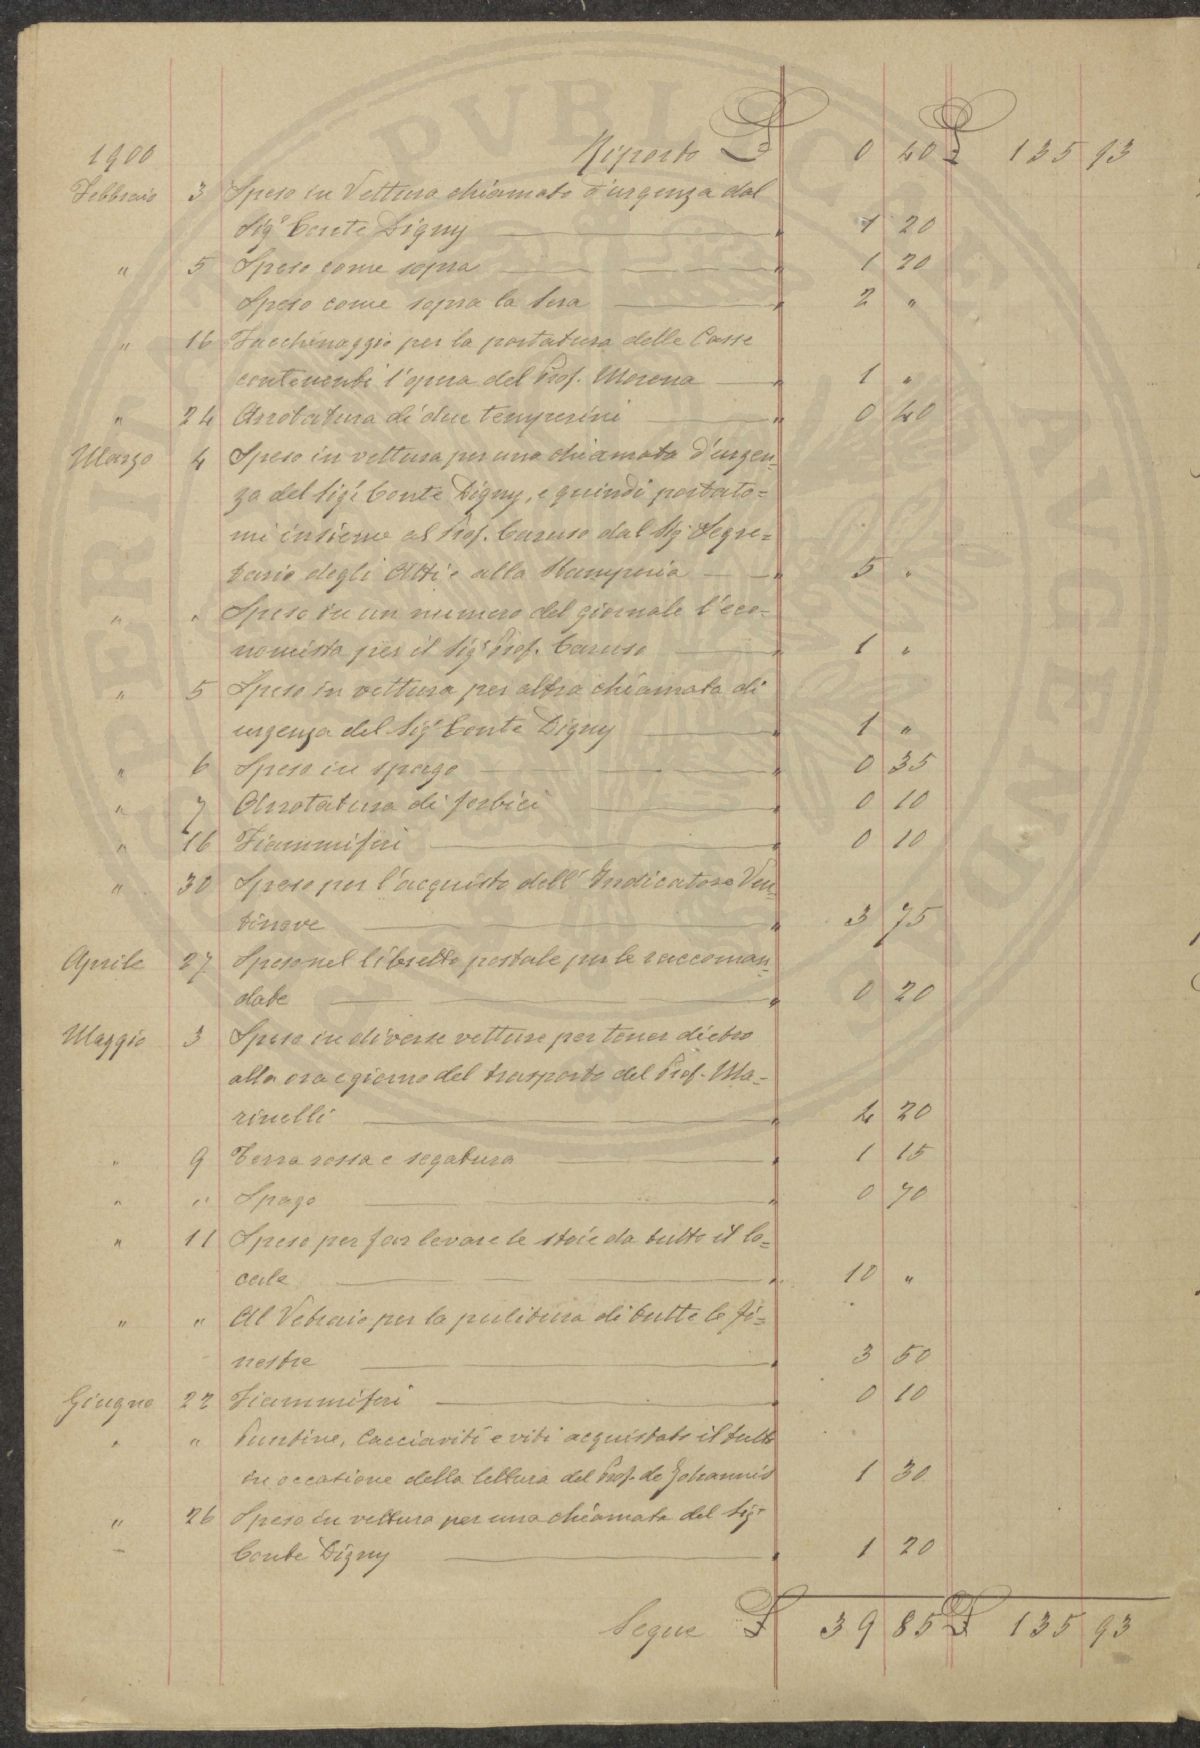 1900 Riporto £ 0 40 £ 135 93
Febbraio 3 Speso in Vettura chiamato d'urgenza dal
Sigr Conte Digny " 1 20
" 5 Speso come sopra " 1 20
Speso come sopra la sera " 2 "
" 16 Facchinaggio per la portatura delle Casse
contenenti l'opera del Prof. Morena " 1 "
" 24 Arrotatura di due temperini " 0 40
Marzo 4 Speso in vettura per una chiamata d'urgen=
za del Sigr Conte Digny, e quindi portato=
mi insieme al Prof. Caruso dal Sigr Segre=
tario degli Atti e alla Stamperia " 5 "
" " Speso in un numero del giornale l'eco=
nomista per il Sigr Prof. Caruso " 1 "
" 5 Speso in vettura per altra chiamata di
urgenza del Sigr Conte Digny " 1 "
" 6 Speso in spago " 0 35
" 7 Arrotatura di forbici " 0 10
" 16 Fiammiferi " 0 10
" 30 Speso per l'acquisto dell'Indicatore Ven=
tinove " 3 75
Aprile 27 Speso nel libretto postale per le raccoman=
date " 0 20
Maggio 3 Speso in diverse vetture per tener dietro
alla ora e giorno del trasporto del Prof. Ma=
rinelli " 4 20
" 9 Terra rossa e segatura " 1 15
" " Spago " 0 70
" 11 Speso per far levare le stoie da tutto il lo=
cale " 10 "
" " Al Vetraio per la pulitura di tutte le fi=
nestre " 3 50
Giugno 22 Fiammiferi " 0 10
" " Puntine, Cacciaviti e viti acquistato il tutto
in occasione della lettura del Prof. de Johannis 1 30
" 26 Speso in vettura per una chiamata del Sigr
Conte Digny " 1 20
Segue £ 39 85 £ 135 93